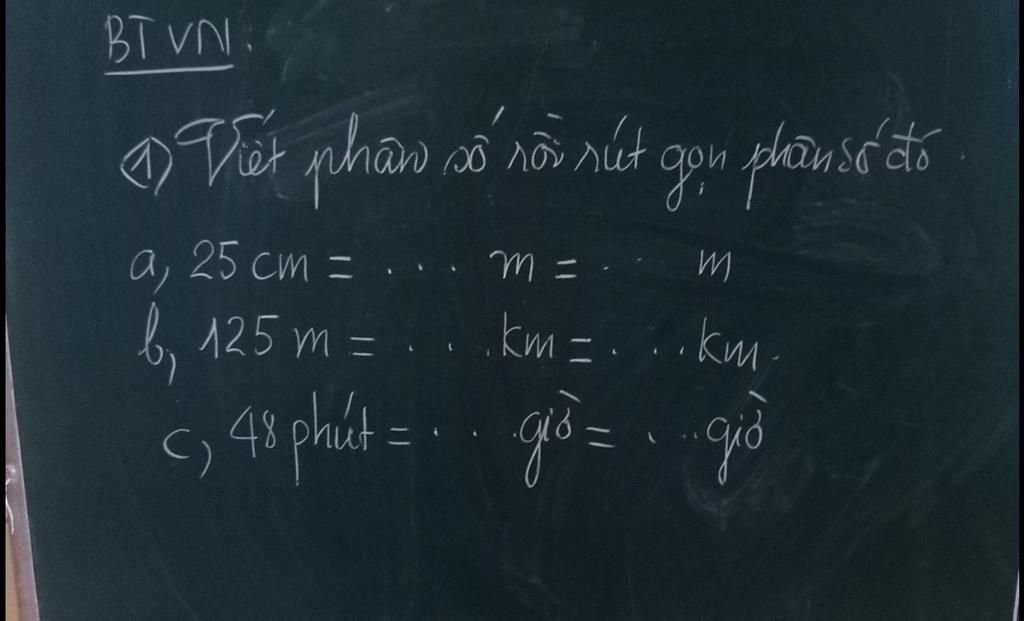 BTVN:
① Viết phân số rồi rút gọn phân số đó.
a, 25 cm = . . . . m = . . . m
b, 125 m = . . . . km = . . . . km.
c, 48 phút = . . . . giờ = . . . . giờ